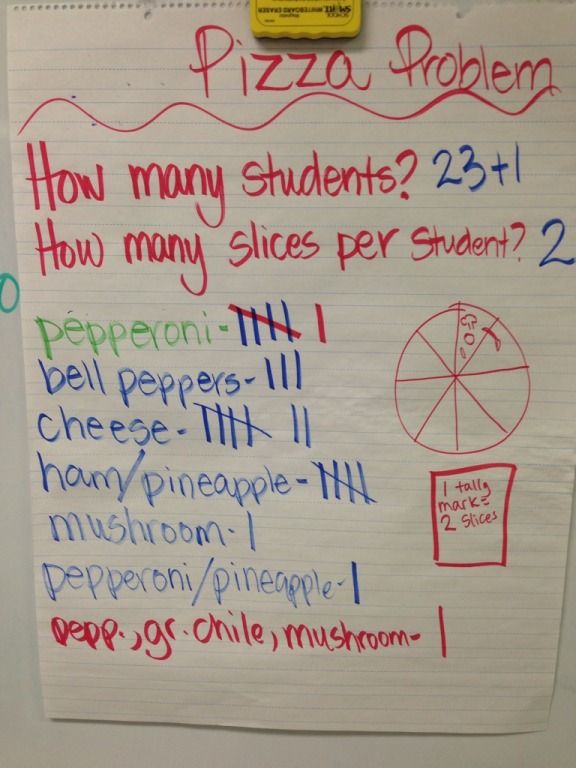 Pizza Problem
How many students? 23+1
How many slices per student? 2
pepperoni-
bell peppers-
cheese-
ham/pineapple-
mushroom-
pepperoni/pineapple-
pepp., gr. chile, mushroom-
1 tally
mark=
2 slices
WHITEBOARD ERASER
SCHOOL